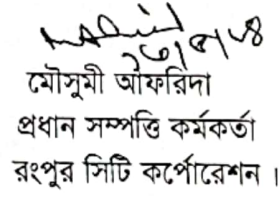 মৌসুমী আফরিদা
প্রধান সম্পত্তি কর্মকর্তা
রংপুর সিটি কর্পোরেশন।